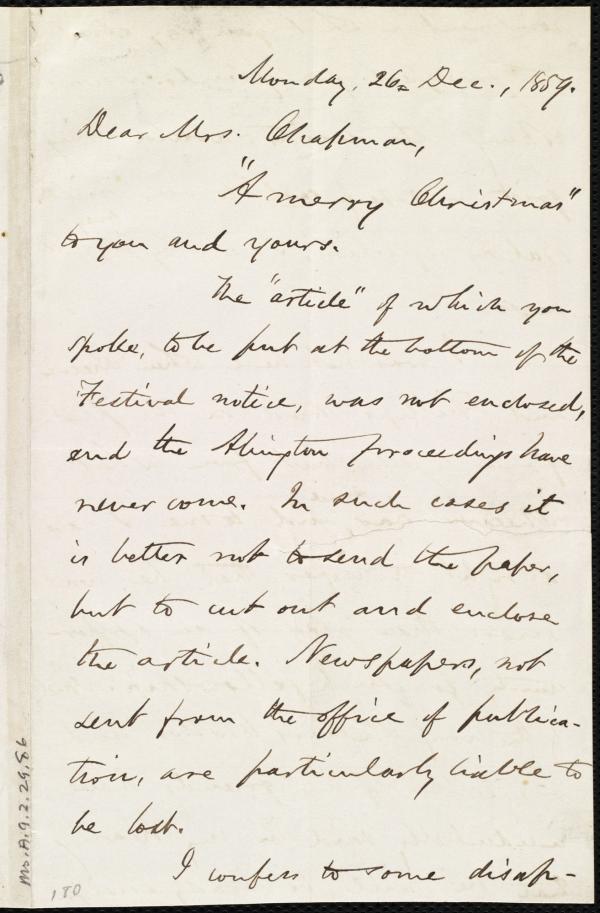 Monday, 26 Dec., 1859.
Dear Mrs. Chapman,
"A merry Christmas"
to you and yours.
The "article" of which you
spoke, to be put at the bottom of the
Festival notice, was not enclosed,
and the Abington proceedings have
never come. In such cases it
is better not to send the paper,
but to cut out and enclose
the article. Newspapers, not
sent from the office of publica-
tion, are particularly liable to
be lost.
I confess to some disap-
Ms. A.9.2.29.86
180